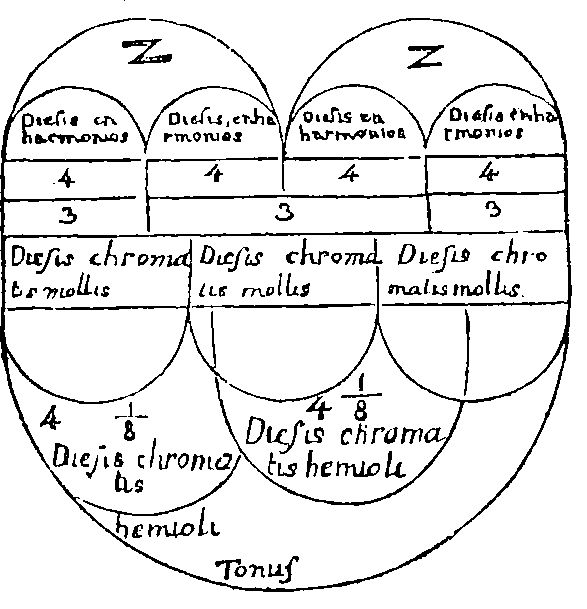 Z
Z
Dieſis en
harmonios
Dieſis, enha
rmonios
Dieſis en
harmonios
Dieſis enha
rmonios
4 4 4 4
3 3 3
Dieſis chroma
tis mollis
Dieſis chroma
tis mollis
Dieſis chro
matis mollis.
4 1/8
Dieſis chroma
tis
hemioli
4 1/8
Dieſis chroma
tis hemioli
Tonuſ